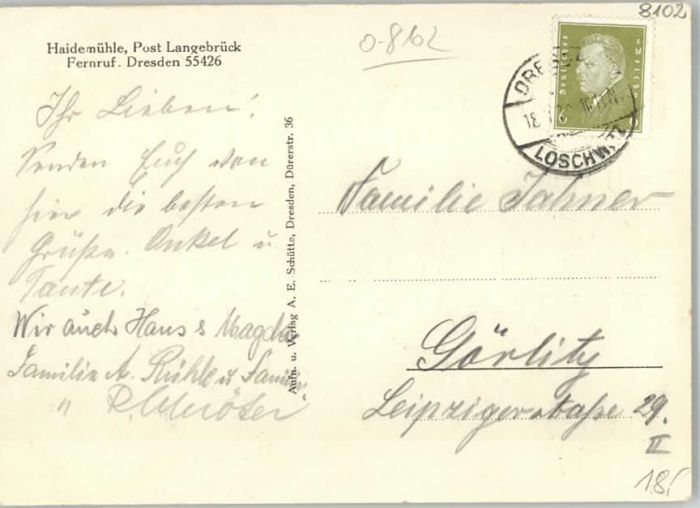 8102
0-8102
Haidemühle, Post Langebrück
Fernruf. Dresden 55426
Deutsches Reich
6 6
DRESDEN
LOSCHWITZ
Ihr Lieben!
Senden Euch von
hier die besten
Grüße. Onkel u
Tante.
Wir auch Hans & Magda
Familie A. Rühle u Familie
"
Aufn. u. Verlag A. E. Schütte, Dresden, Dürerstr. 36
Familie Jahner
Görlitz
Leipzigerstraße 29.
II
18,